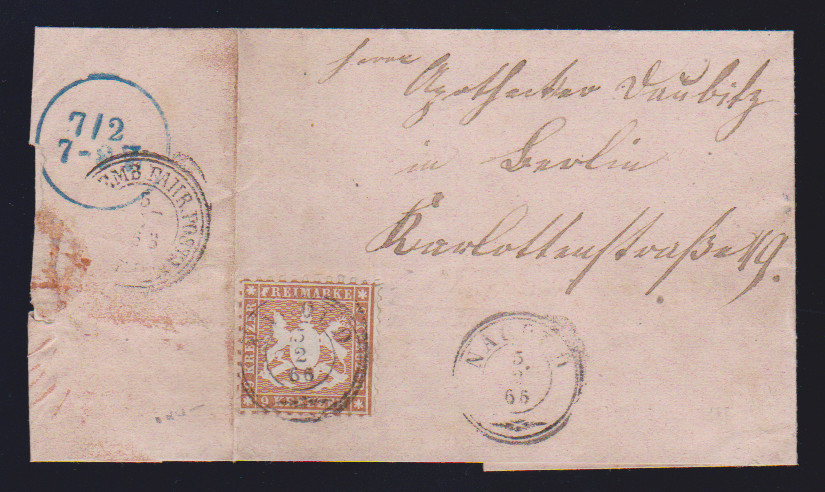 Herrn
Apotheker Daubitz
in Berlin
Karlottenstraße 19.
7/2
7-
EMB FAHR. POST
5
FREIMARKE
KREUZER
9
5
2
66
NAGOLD
5
2
66